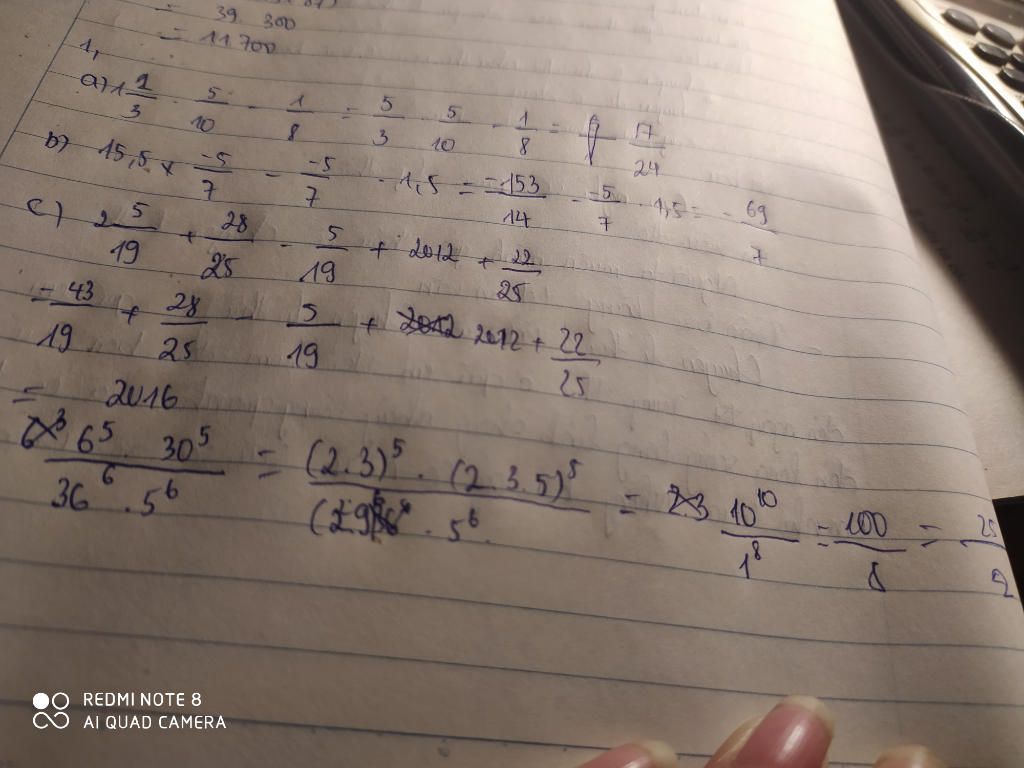 = 39. 300
= 11.700
1,
a) 1 2/3 . 5/10 - 1/8 = 5/3 . 5/10 - 1/8 = 17/24
b) 15,5 x -5/7 - -5/7 . 1,5 = -153/14 - 5/7 . 1,5 = - 69/7
c) 2 5/19 + 28/25 - 5/19 + 2012 + 22/25
= 43/19 + 28/25 - 5/19 + 2012 + 22/25
= 2016
6^5 . 30^5 / 36^6 . 5^6 = (2.3)^5 . (2.3.5)^5 / . 5^6 = 10^10 / 1^8 = 100 / = 25/2
REDMI NOTE 8
AI QUAD CAMERA